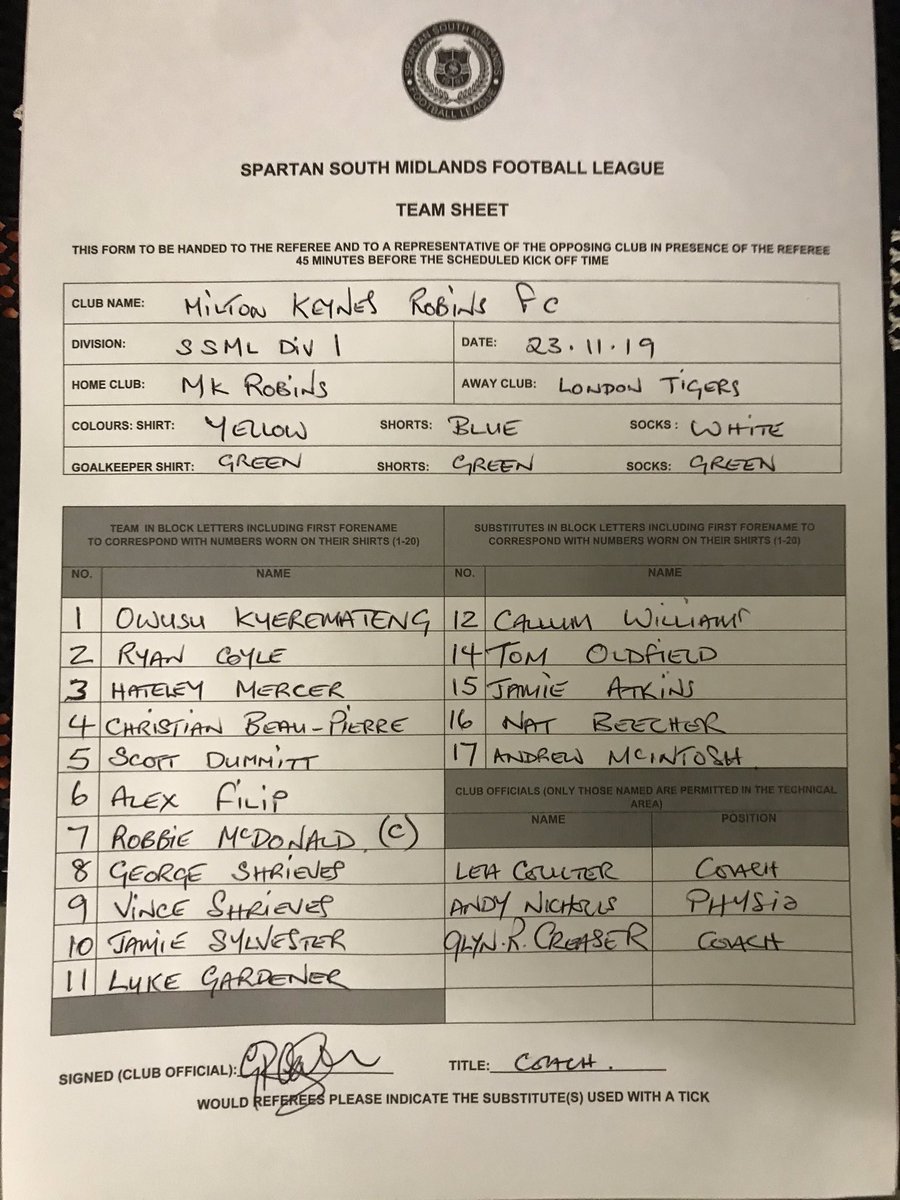 SPARTAN SOUTH MIDLANDS
FOOTBALL LEAGUE
SPARTAN SOUTH MIDLANDS FOOTBALL LEAGUE
TEAM SHEET
THIS FORM TO BE HANDED TO THE REFEREE AND TO A REPRESENTATIVE OF THE OPPOSING CLUB IN PRESENCE OF THE REFEREE
45 MINUTES BEFORE THE SCHEDULED KICK OFF TIME
CLUB NAME: MILTON KEYNES ROBINS FC
DIVISION: SSML DIV 1 DATE: 23.11.19
HOME CLUB: MK ROBINS AWAY CLUB: LONDON TIGERS
COLOURS: SHIRT: YELLOW SHORTS: BLUE SOCKS : WHITE
GOALKEEPER SHIRT: GREEN SHORTS: GREEN SOCKS: GREEN
TEAM IN BLOCK LETTERS INCLUDING FIRST FORENAME
TO CORRESPOND WITH NUMBERS WORN ON THEIR SHIRTS (1-20)
NO. NAME
1 OWUSU KYEREMATENG
2 RYAN COYLE
3 HATELEY MERCER
4 CHRISTIAN BEAU-PIERRE
5 SCOTT DUMMITT
6 ALEX FILIP
7 ROBBIE McDONALD. (C)
8 GEORGE SHRIEVES
9 VINCE SHRIEVES
10 JAMIE SYLVESTER
11 LUKE GARDENER
SUBSTITUTES IN BLOCK LETTERS INCLUDING FIRST FORENAME TO
CORRESPOND WITH NUMBERS WORN ON THEIR SHIRTS (1-20)
NO. NAME
12 CALLUM WILLIAMS
14 TOM OLDFIELD
15 JAMIE ATKINS
16 NAT BEECHER
17 ANDREW MCINTOSH.
CLUB OFFICIALS (ONLY THOSE NAMED ARE PERMITTED IN THE TECHNICAL
AREA)
NAME POSITION
LEA COULTER COACH
ANDY NICHOLLS PHYSIO
GLYN.R. CREASER COACH
SIGNED (CLUB OFFICIAL): TITLE: COACH.
WOULD REFEREES PLEASE INDICATE THE SUBSTITUTE(S) USED WITH A TICK